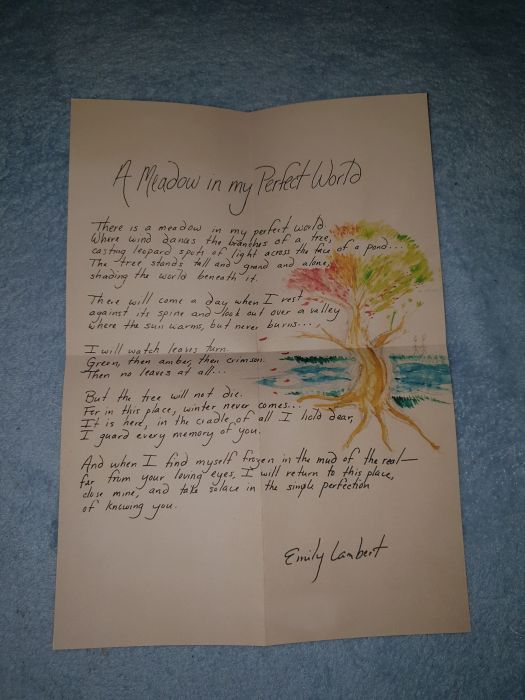 A Meadow in my Perfect World
There is a meadow in my perfect world
Where wind dances the branches of a tree,
casting leopard spots of light across the face of a pond...
The tree stands tall and grand and alone,
shading the world beneath it.
There will come a day when I rest
against its spine and look out over a valley
where the sun warms, but never burns...
I will watch leaves turn.
Green, then amber, then crimson.
Then no leaves at all...
But the tree will not die.
For in this place, winter never comes...
It is here, in the cradle of all I hold dear,
I guard every memory of you.
And when I find myself frozen in the mud of the real—
far from your loving eyes, I will return to this place,
close mine, and take solace in the simple perfection
of knowing you.
Emily Lambert